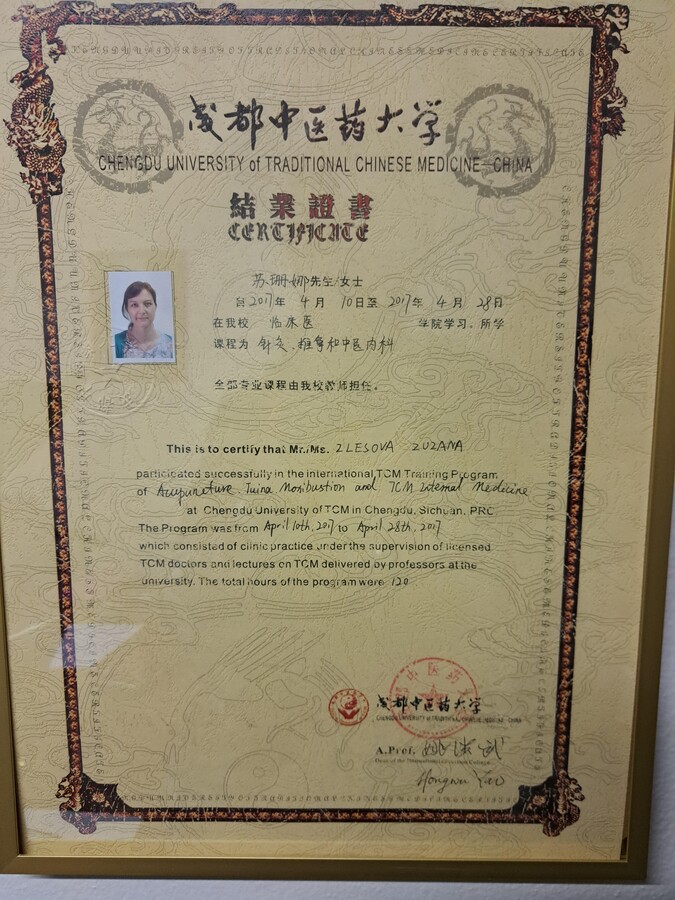 成都中医药大学
CHENGDU UNIVERSITY of TRADITIONAL CHINESE MEDICINE—CHINA
結業證書
CERTIFICATE
苏珊娜先生/女士
自2017年 4月 10日至 2017年 4月 28日
在我校 临床医 学院学习。所学
课程为 针灸、推拿和中医内科
全部专业课程由我校教师担任。
This is to certify that Mr./Ms. ZLESOVA ZUZANA
participated successfully in the international TCM Training Program
of Acupuncture. Tuina Moxibustion and TCM Internal Medicine
at Chengdu University of TCM in Chengdu, Sichuan, PRC.
The Program was from April 10th, 2017 to April 28th, 2017
which consisted of clinic practice under the supervision of licensed
TCM doctors and lectures on TCM delivered by professors at the
university. The total hours of the program were 120
成都中医药大学
CHENGDU UNIVERSITY of TRADITIONAL CHINESE MEDICINE—CHINA
A.Prof.
Dean of the International Education College
Hongwu Yao